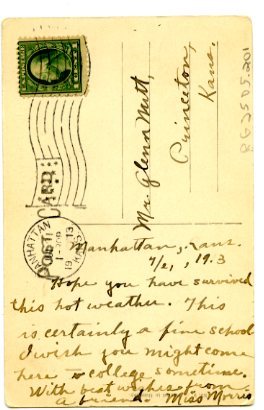 Mr. Glenn Mutt,
Princeton,
Kans.
8625 D5.201
POST
CARD
MANHATTAN
KANS.
19 13
Manhattan, Kans.
7/21, 1913
Hope you have survived
this hot weather. This
is certainly a fine school
I wish you might come
here to college sometime.
With best wishes from
a friend Miss Morris